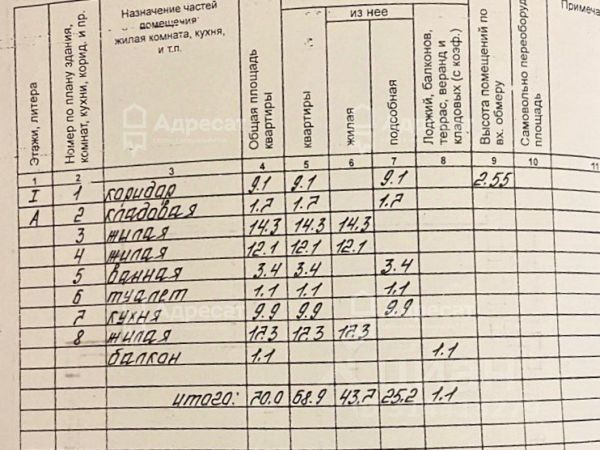 Этажи, литера
Номер по плану здания,
комнат, кухни, корид. и пр.
Назначение частей
помещения
жилая комната, кухня,
и т.п.
Общая площадь
квартиры
из нее
квартиры
жилая
подсобная
Лоджий, балконов,
террас, веранд и
кладовых (с коэф.)
Высота помещений по
вх. обмеру
Самовольно переоборуд
площадь
Примеча
1 2 3 4 5 6 7 8 9 10 11
I 1 коридар 9.1 9.1 9.1 2.55
А 2 кладовая 1.7 1.7 1.7
3 жилая 14.3 14.3 14.3
4 жилая 12.1 12.1 12.1
5 ванная 3.4 3.4 3.4
6 туалет 1.1 1.1 1.1
7 кухня 9.9 9.9 9.9
8 жилая 17.3 17.3 17.3
балкон 1.1 1.1
итого: 70.0 68.9 43.7 25.2 1.1
Адресат
Адресат